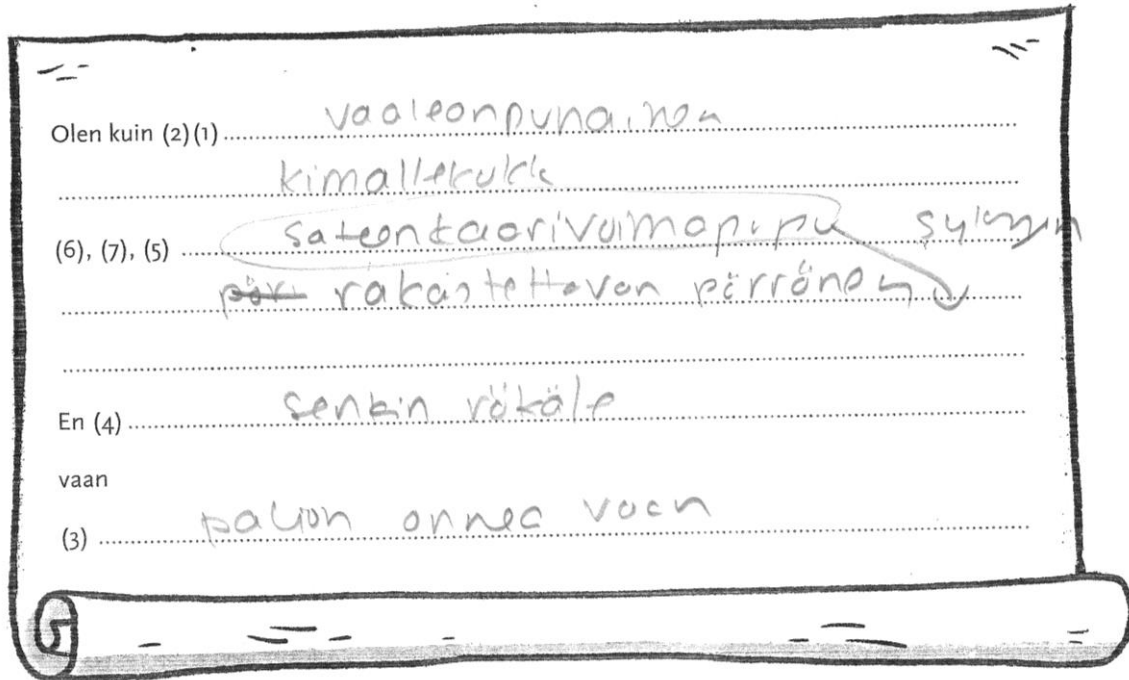 Olen kuin (2) (1) vaaleanpunainen
kimallekukk
(6), (7), (5) sateenkaarivoimapupu
rakastettavan pörrönen
En (4) senkin rökäle
vaan
(3) paljon onnea vaan